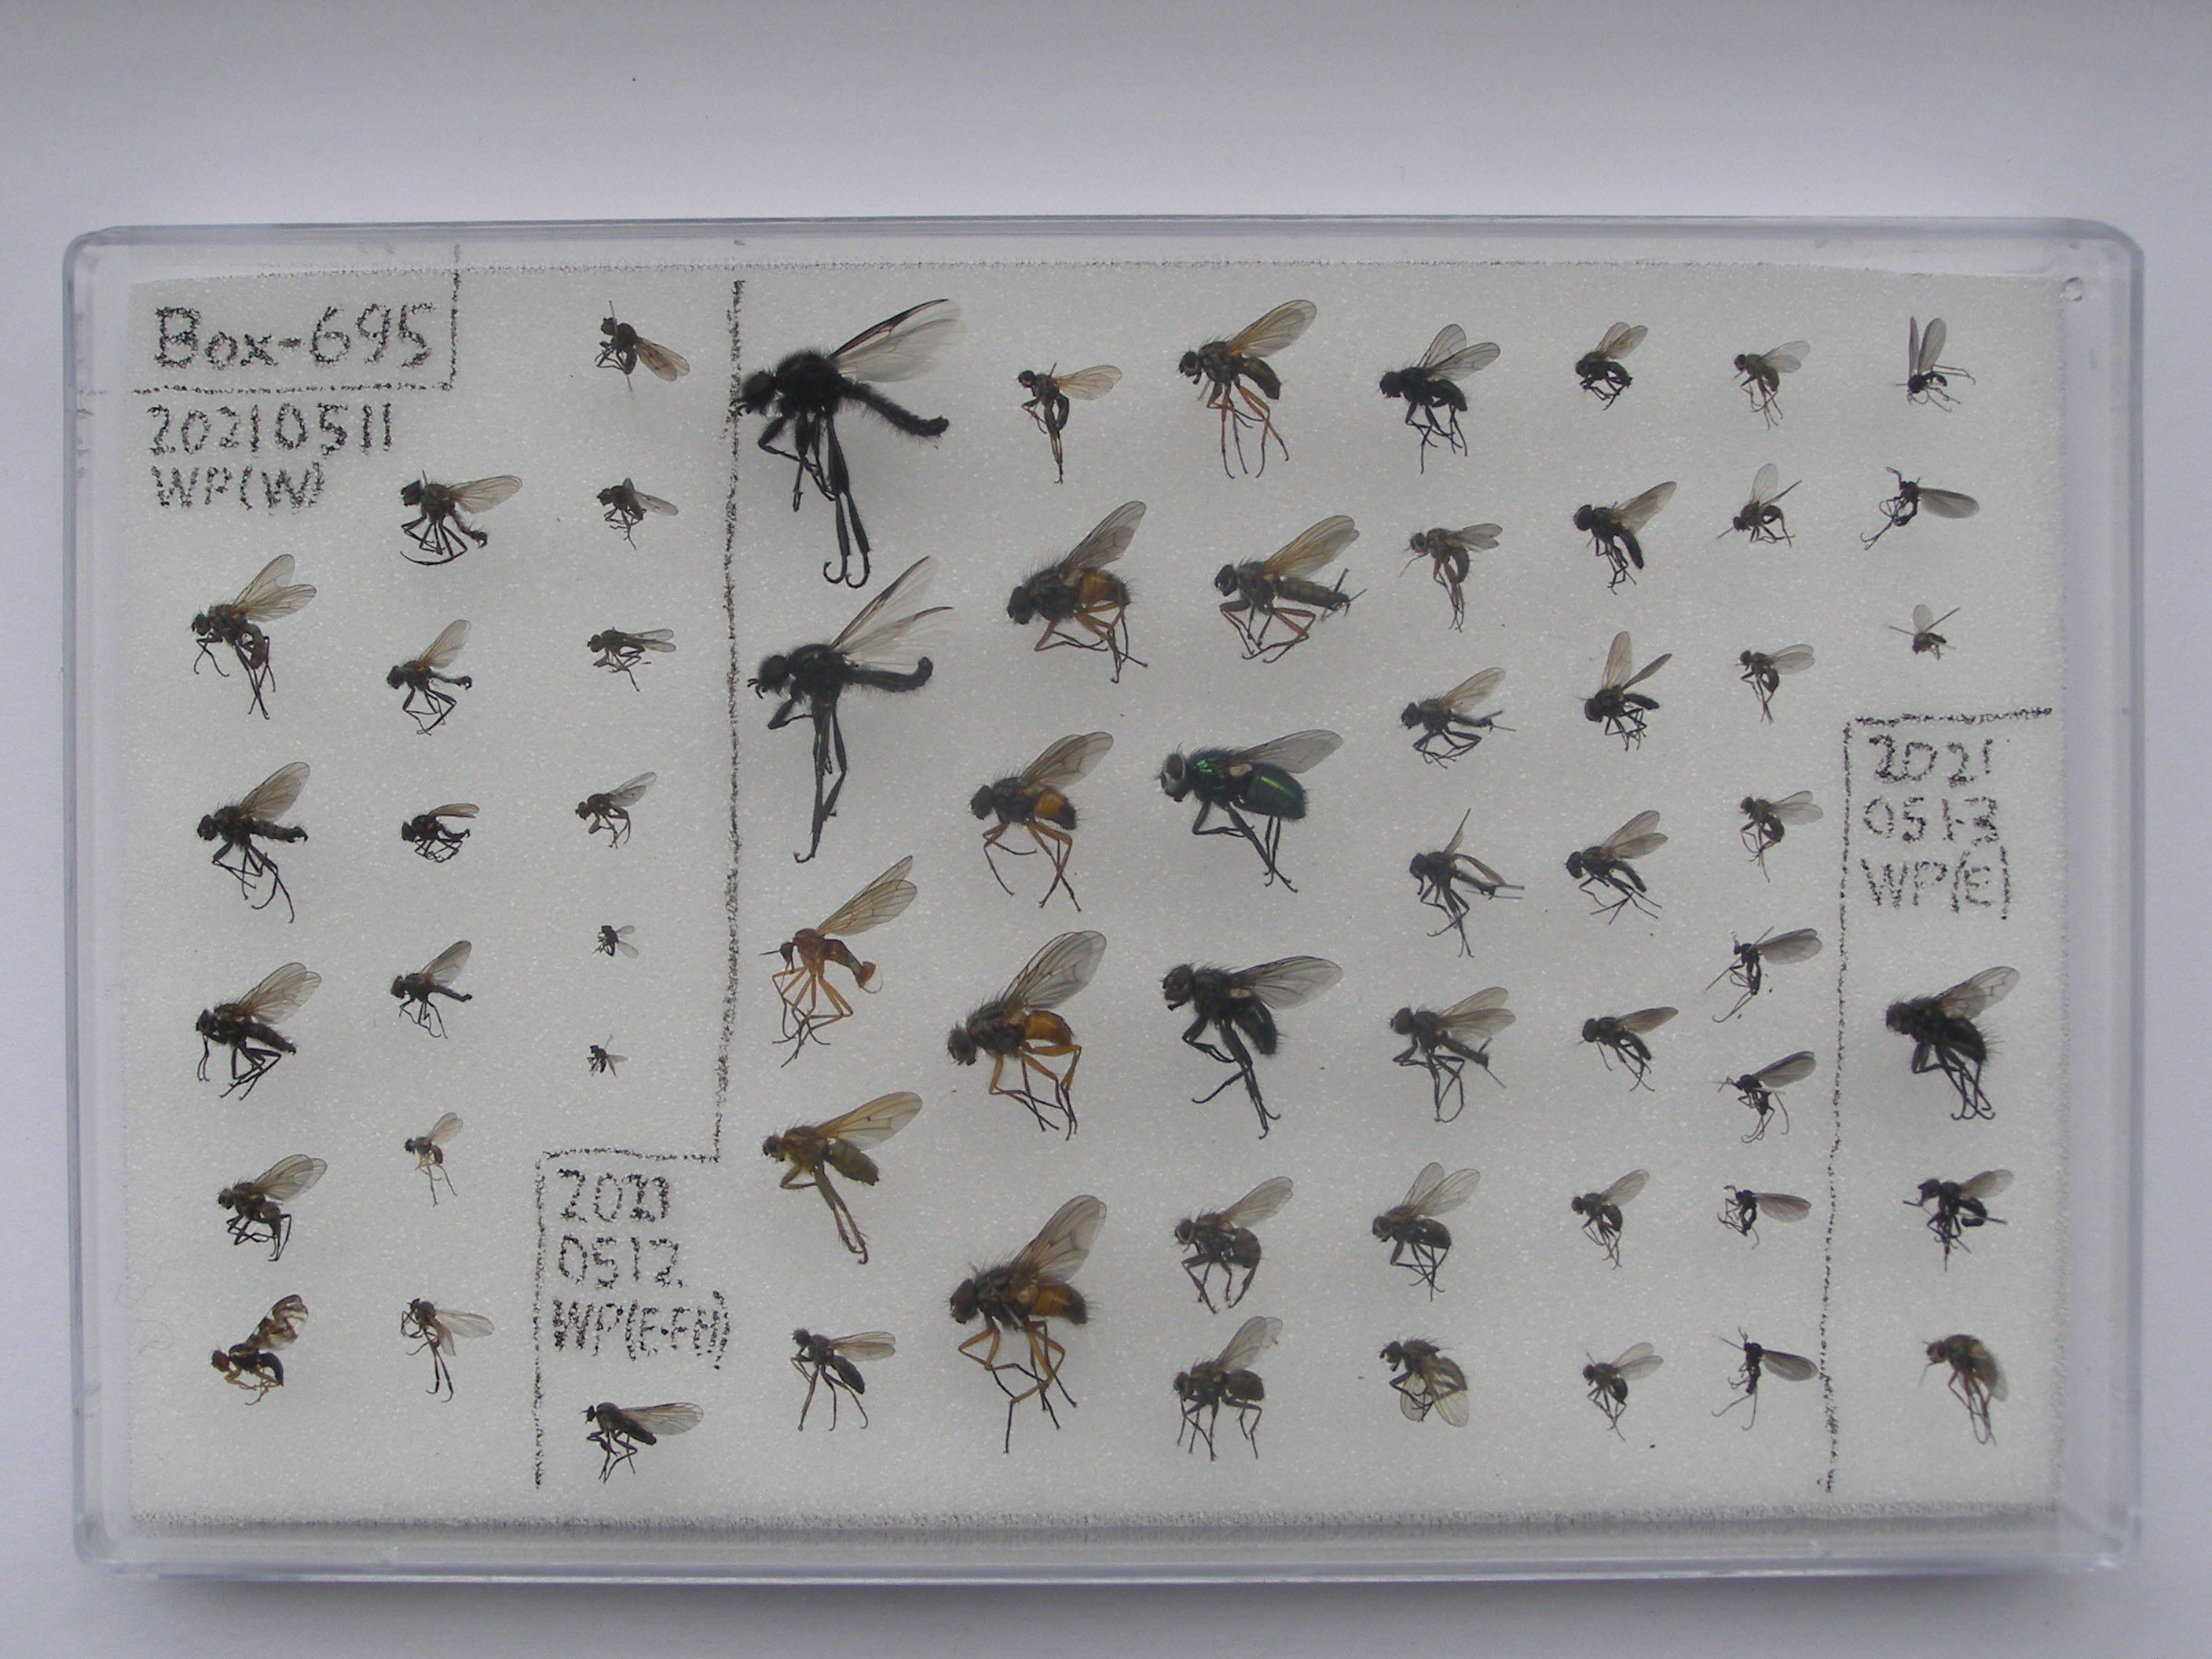 Box-695
20210511
WP(W)
2021
0512
2021
0513
WP(E)